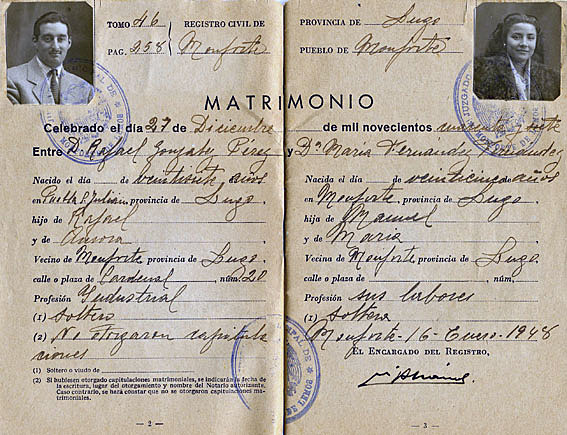 TOMO 46
PAG. 258
REGISTRO CIVIL DE
Monforte
MATRIMONIO
Celebrado el día 27 de Diciembre
Entre D. Rafael Gonzalez Pérez
Nacido el día de veintisiete años
en Puebla S. Julián provincia de Lugo
hijo de Rafael
y de Aurora
Vecino de Monforte provincia de Lugo
calle o plaza de Cardenal, núm. 20
Profesión Industrial
(1) soltero
(2) No otorgaron capitula
ciones
(1) Soltero o viudo de
(2) Si hubiesen otorgado capitulaciones matrimoniales, se indicarán la fecha de
la escritura, lugar del otorgamiento y nombre del Notario autorizante.
Caso contrario, se hará constar que no se otorgaron capitulaciones ma-
trimoniales.
— 2 —
PROVINCIA DE Lugo
PUEBLO DE Monforte
de mil novecientos cuarenta y siete
y D.ª Maria Fernández
Nacida el día de veinticinco de años
en Monforte, provincia de Lugo
hija de Manuel
y de Maria
Vecina de Monforte provincia de Lugo
calle o plaza de, núm.
Profesión sus labores
(1) soltera
Monforte - 16 - Enero - 1948
EL ENCARGADO DEL REGISTRO,
— 3 —